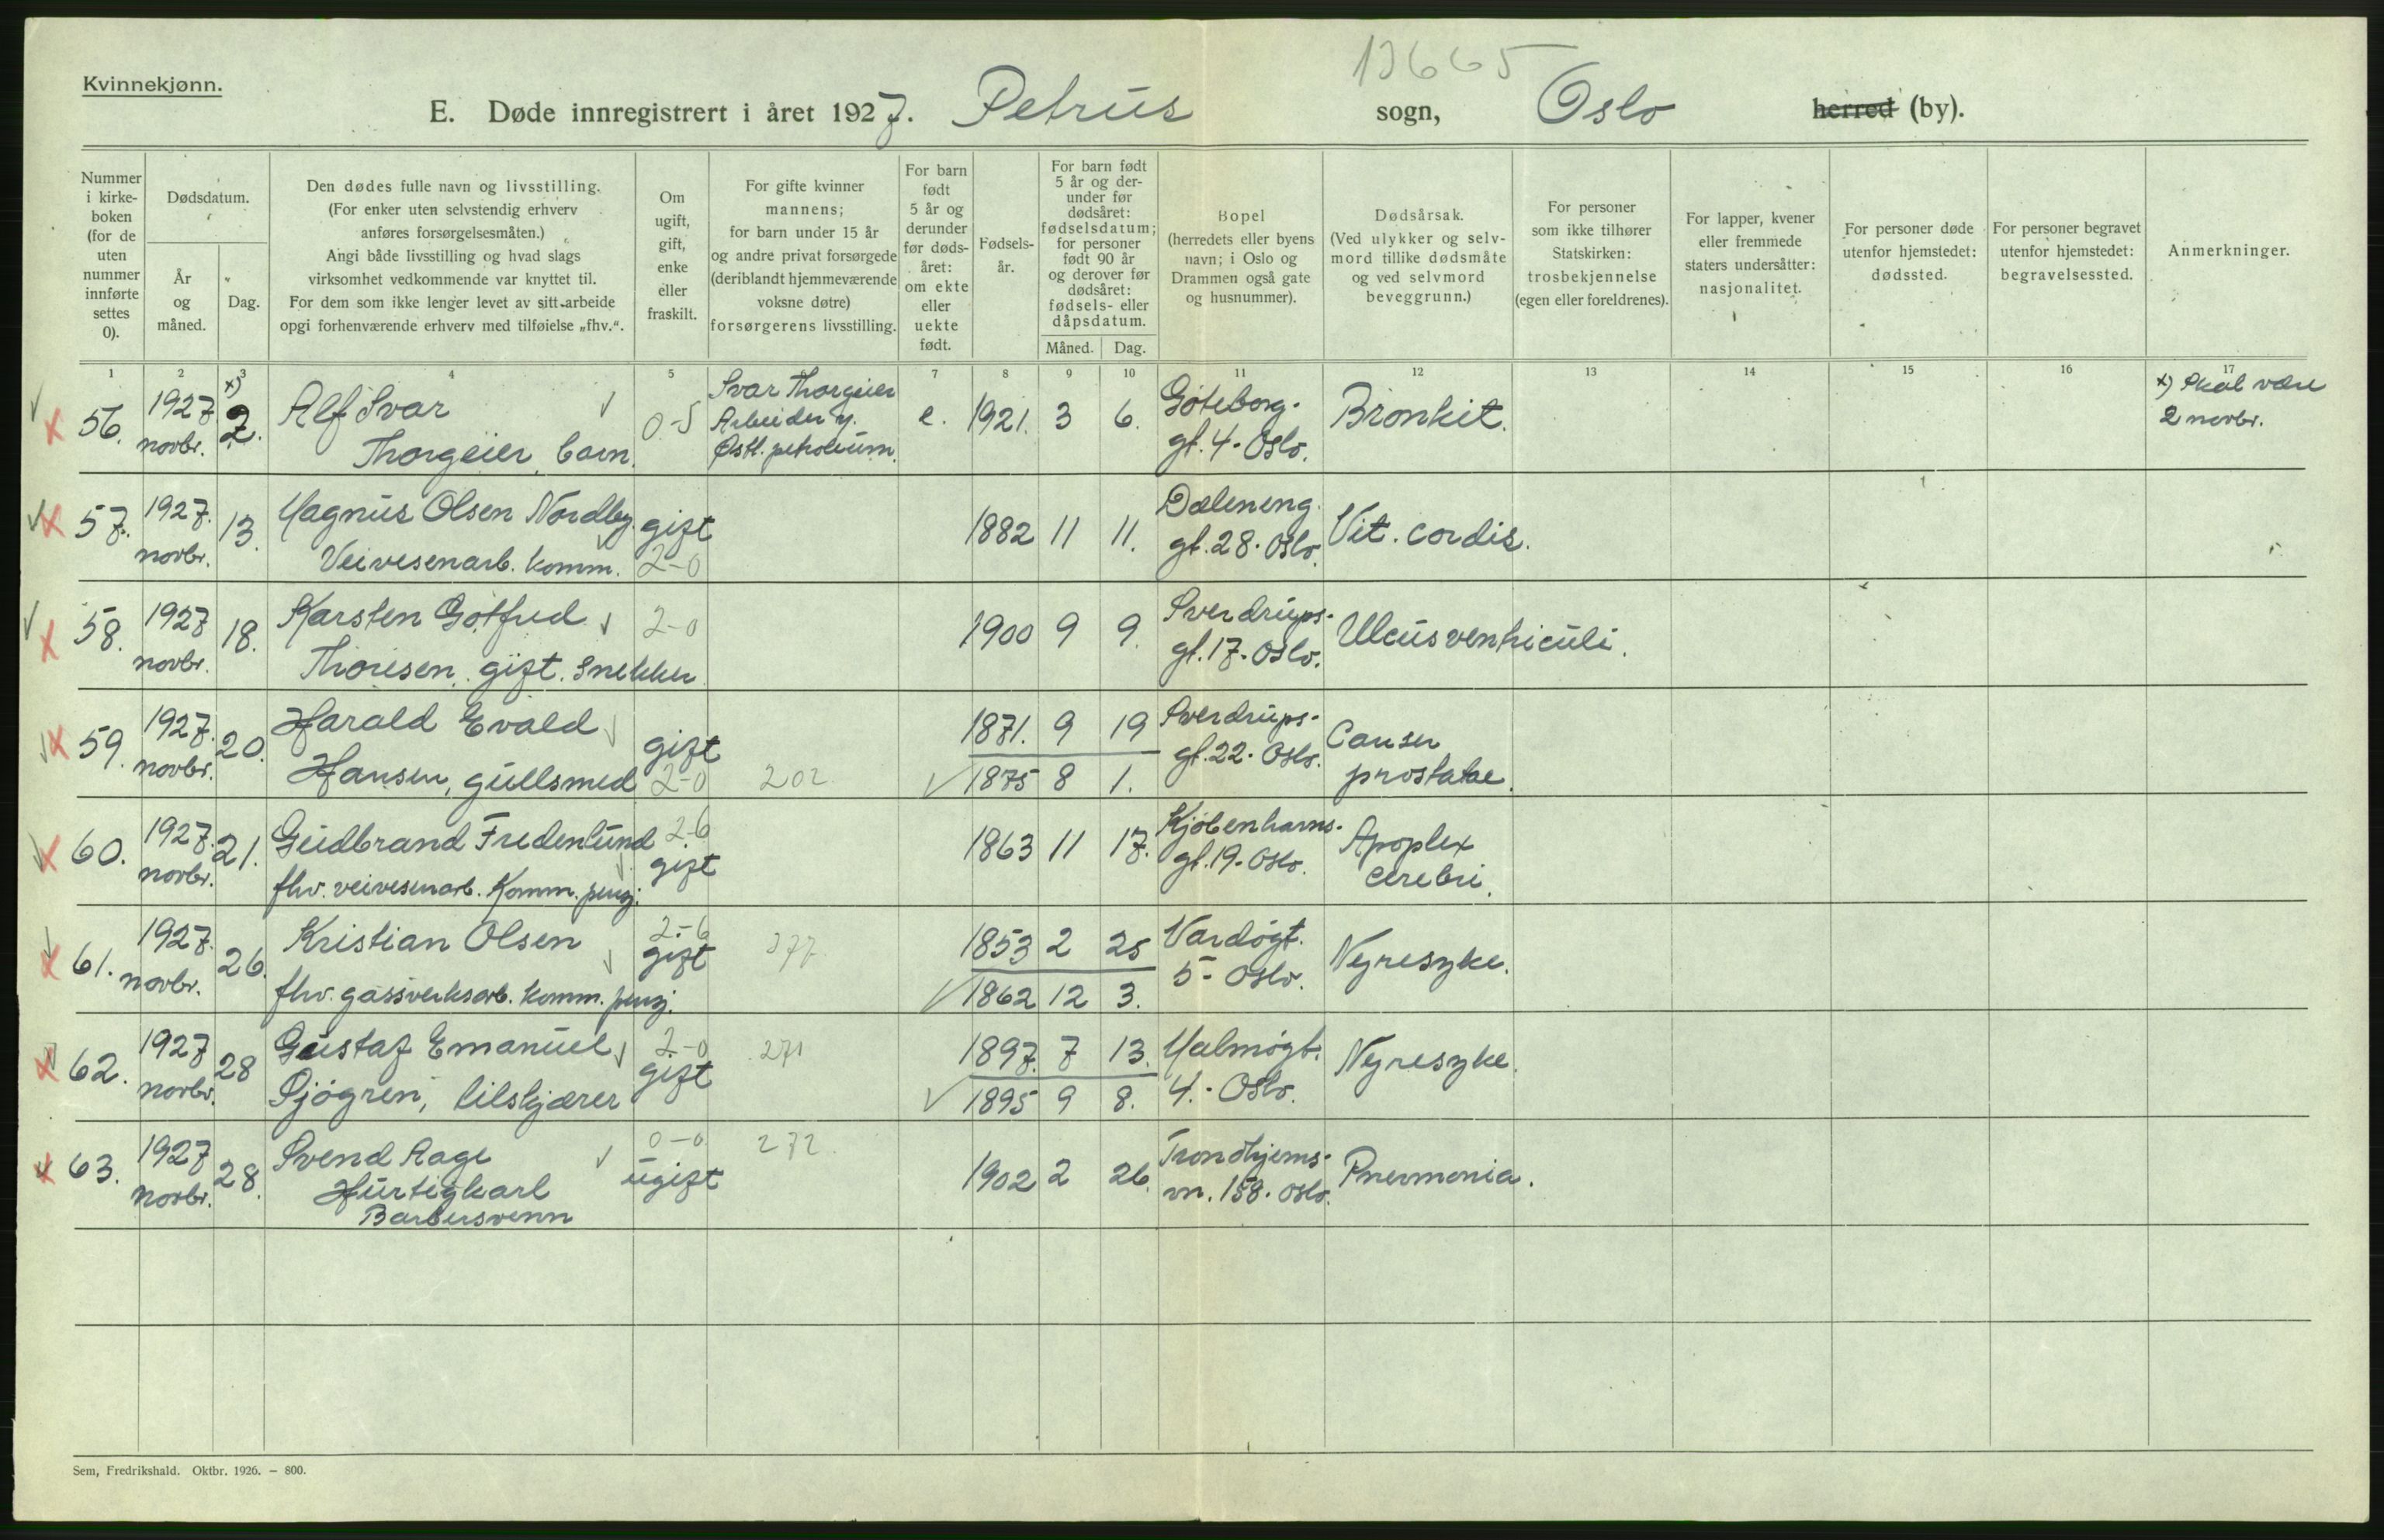 Kvinnekjønn.
13665
E. Døde innregistrert i året 1927. Petrus sogn, Oslo herred (by).
Nummer i kirke-boken (for de uten nummer innførte settes 0).
Dødsdatum.
År og måned.
Dag.
Den dødes fulle navn og livsstilling.
(For enker uten selvstendig erhverv
anføres forsørgelsesmåten.)
Angi både livsstilling og hvad slags
virksomhet vedkommende var knyttet til.
For dem som ikke lenger levet av sitt arbeide
opgi forhenværende erhverv med tilføielse „fhv.“.
Om ugift, gift, enke eller fraskilt.
For gifte kvinner
mannens;
for barn under 15 år
og andre privat forsørgede
(deriblandt hjemmeværende
voksne døtre)
forsørgerens livsstilling.
For barn født 5 år og derunder før døds-året: om ekte eller uekte født.
Fødsels-år.
For barn født
5 år og der-
under før
dødsåret:
fødselsdatum;
for personer
født 90 år
og derover før
dødsåret:
fødsels- eller
dåpsdatum.
Måned. Dag.
Bopel
(herredets eller byens
navn; i Oslo og
Drammen også gate
og husnummer).
Dødsårsak.
(Ved ulykker og selv-
mord tillike dødsmåte
og ved selvmord
beveggrunn.)
For personer
som ikke tilhører
Statskirken:
trosbekjennelse
(egen eller foreldrenes).
For lapper, kvener
eller fremmede
staters undersåtter:
nasjonalitet.
For personer døde
utenfor hjemstedet:
dødssted.
For personer begravet
utenfor hjemstedet:
begravelsessted.
Anmerkninger.
1 2 3 4 5 6 7 8 9 10 11 12 13 14 15 16 17
56. 1927 novbr. x) 2. Alf Ivar
Thorgeier, barn. 0-5
Ivar Thorgeier
Arbeider v.
Østl. petroleum.
e. 1921. 3 6. Göteborg-
gt. 4 - Oslo.
Bronkit.
x) Skal være
2 novbr.
57. 1927. novbr. 13. Magnus Olsen Nordby
Veivesenarb. komm. gift 2-0
1882 11 11. Dæleneng.
gt. 28. Oslo.
Vit. cordis.
58. 1927 novbr. 18. Karsten Gotfred
Thoresen, gift. Snekker 2-0
1900 9 9. Sverdrups-
gt. 17. Oslo.
Ulcus ventriculi.
59. 1927. novbr. 20. Harald Evald
Hansen, gullsmed gift 2-0 202
1871. 9 19
1875 8 1.
Sverdrups-
gt. 22. Oslo.
Canser
prostatae.
60. 1927. novbr. 21. Gudbrand Fredenlund
fhv. veivesenarb. Komm. pensj. 2-6 gift
1863 11 17. Kjöbenhavns-
gt. 19. Oslo.
Apoplex
cerebri.
61. 1927. novbr. 26. Kristian Olsen
fhv. gassverksarb. komm. pensj. 2-6 gift 277
1853 2 25
1862 12 3.
Vardögt.
5 - Oslo.
Nyresyke.
62. 1927 novbr. 28 Gustaf Emanuel
Sjögren, lilskjærer 2-0 gift 271
1897. 7 13.
1895 9 8.
Malmögt.
4. - Oslo.
Nyresyke.
63. 1927 novbr. 28. Svend Aage
Hurtigkarl
Barbersvenn 0-0 ugift 272.
1902 2 26. Trondhjems-
vn. 158. Oslo.
Pnevmonia.
Sem, Fredrikshald. Oktbr. 1926. – 800.